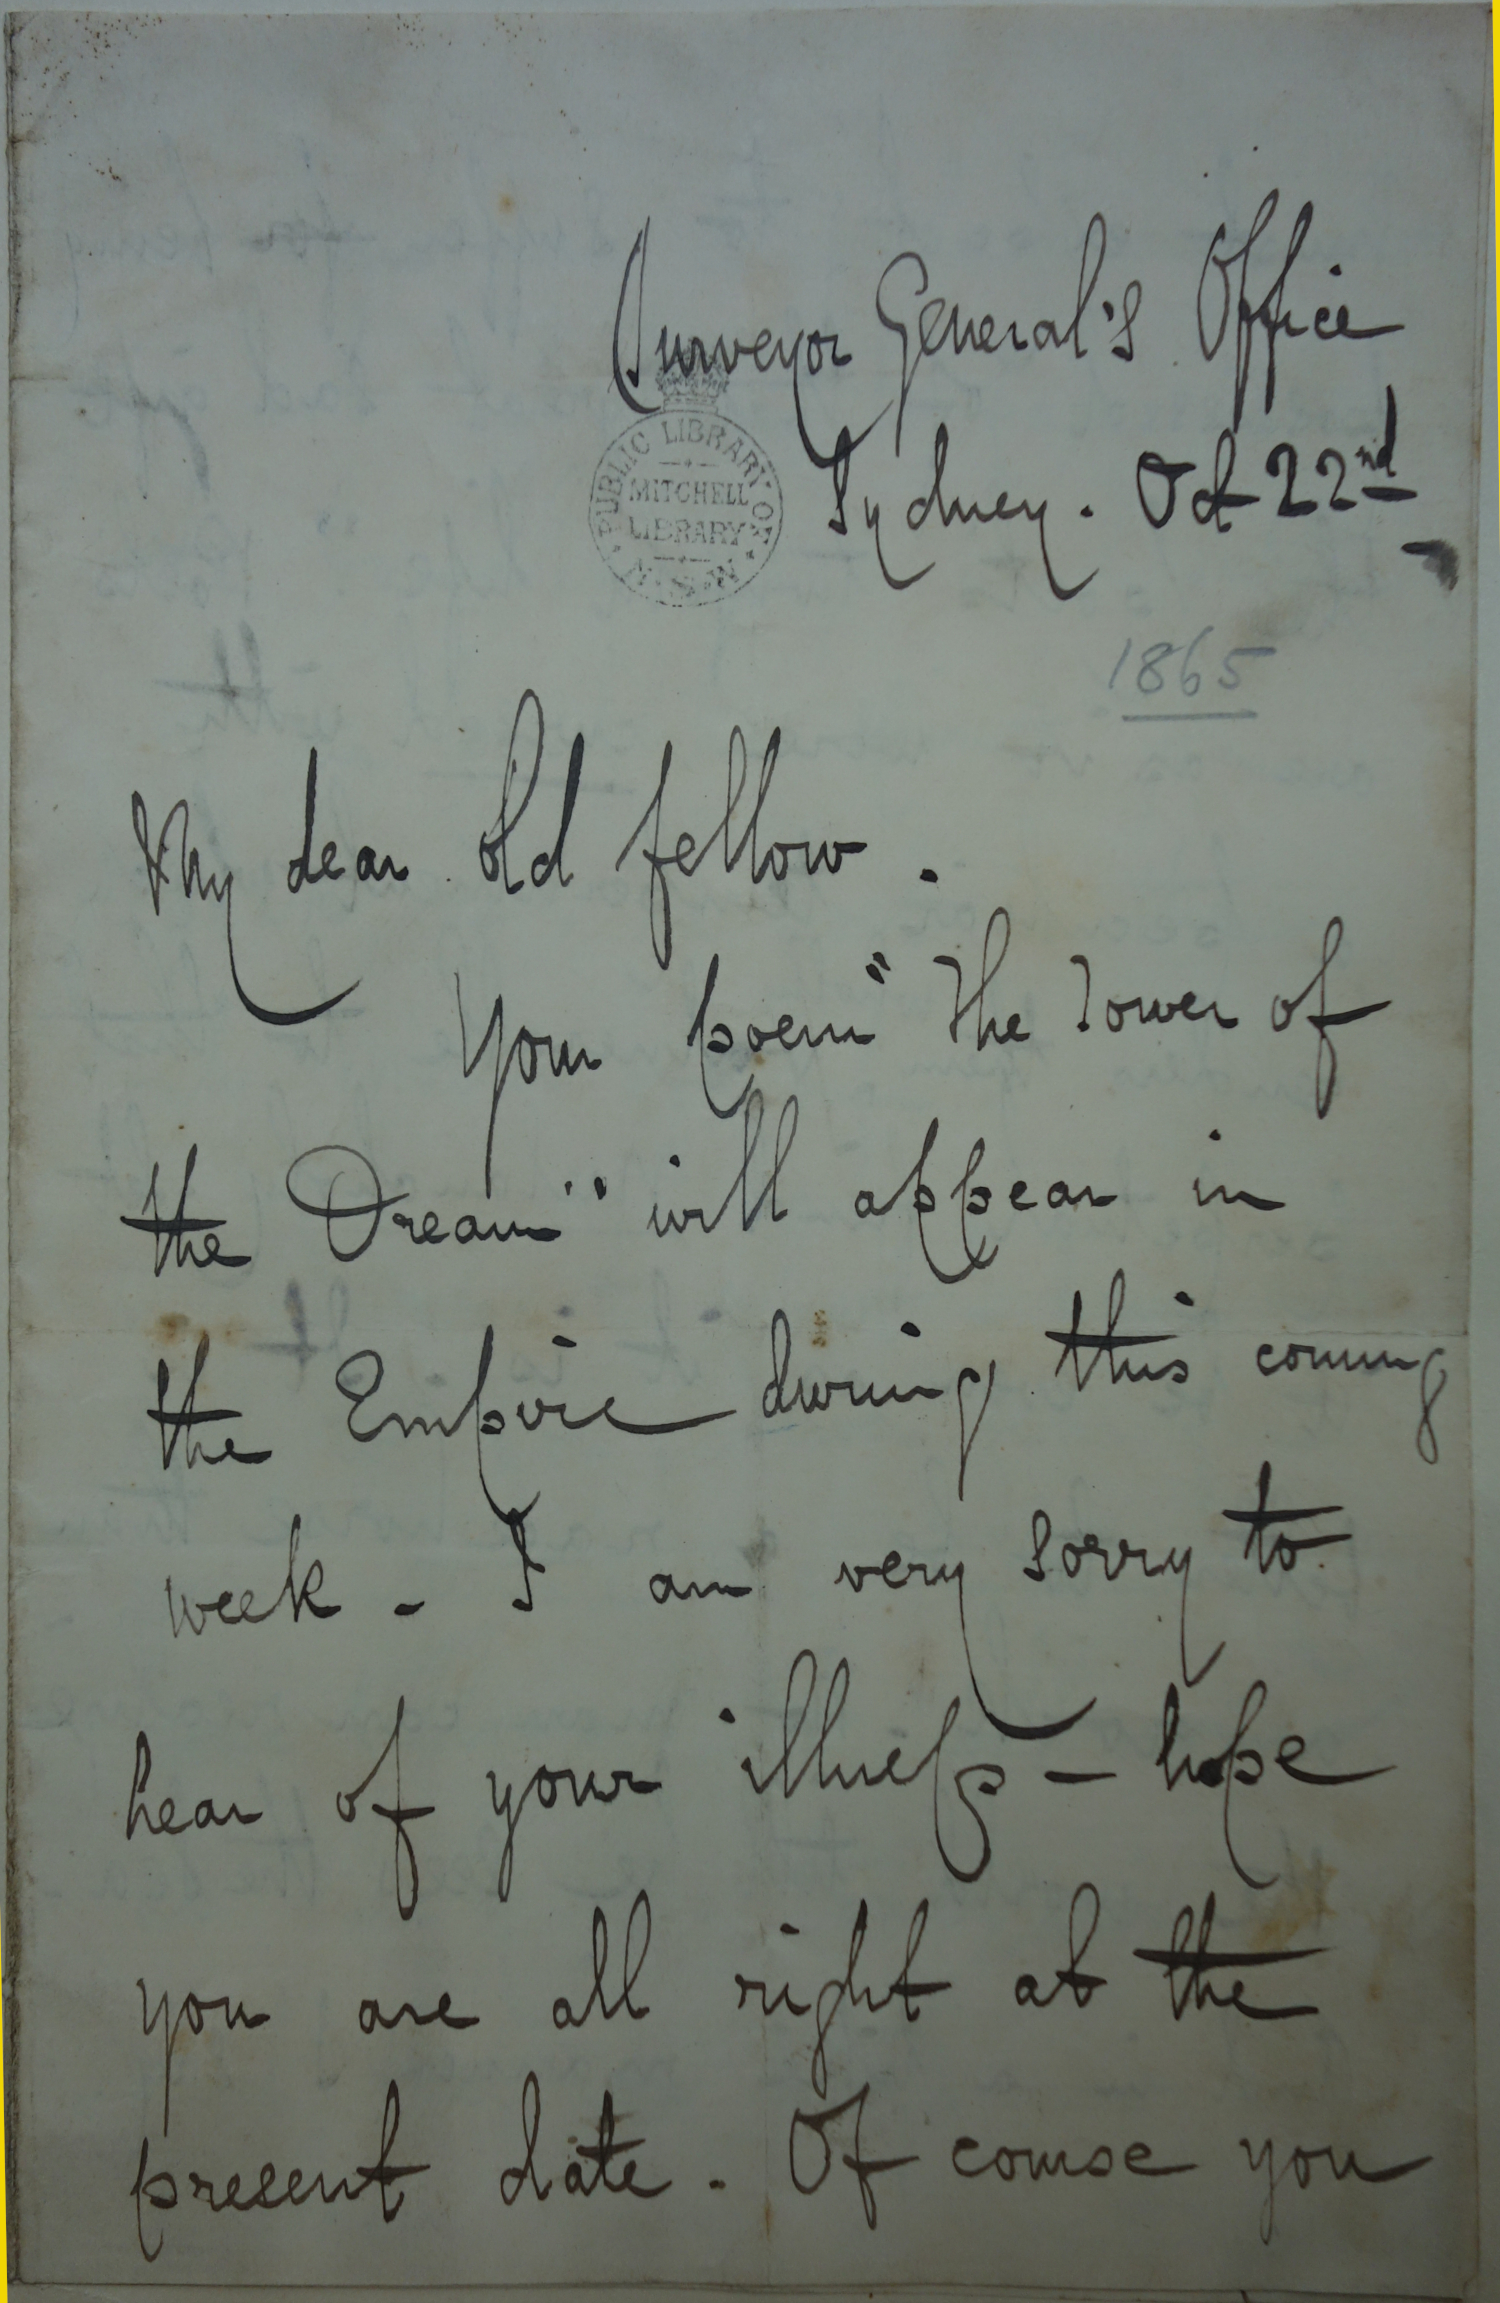 Surveyor General's Office
PUBLIC LIBRARY OF
MITCHELL
LIBRARY
N.S.W.
Sydney. Oct 22nd
1865
My dear old fellow.
Your poem "The Tower of
the Dream" will appear in
the Empire during this coming
week - I am very sorry to
hear of your illness - hope
you are all right at the
present date. Of course you